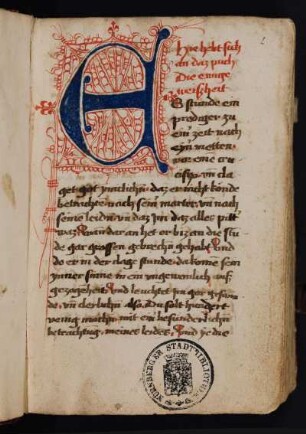 Hie hebt sich
an daz puch
Die ewige
weisheit
ES stunde ein
prediger zu
ein zeit nach
eyn metten
vor eine cru
cifix vn cla
get got ynniclich daz er nicht konde
betrachten nach sein marter vn nach
seine leiden vn daz ym daz alles pitt
waz wan der an het er biz an die stu
de gar grossen gebrechn gehabt Und
do er in der clage stunde da kome sein
ynner sinne in ein vngewonlich auf
gezogeheit Und leuchtet ym gar geswin
de vn clerlichn also Du solt hundert
venig machn mit ein besunderlichn
betrachtug meines leides Und ye die
NÜRNBERGER STADTBIBLIOTHEK
2